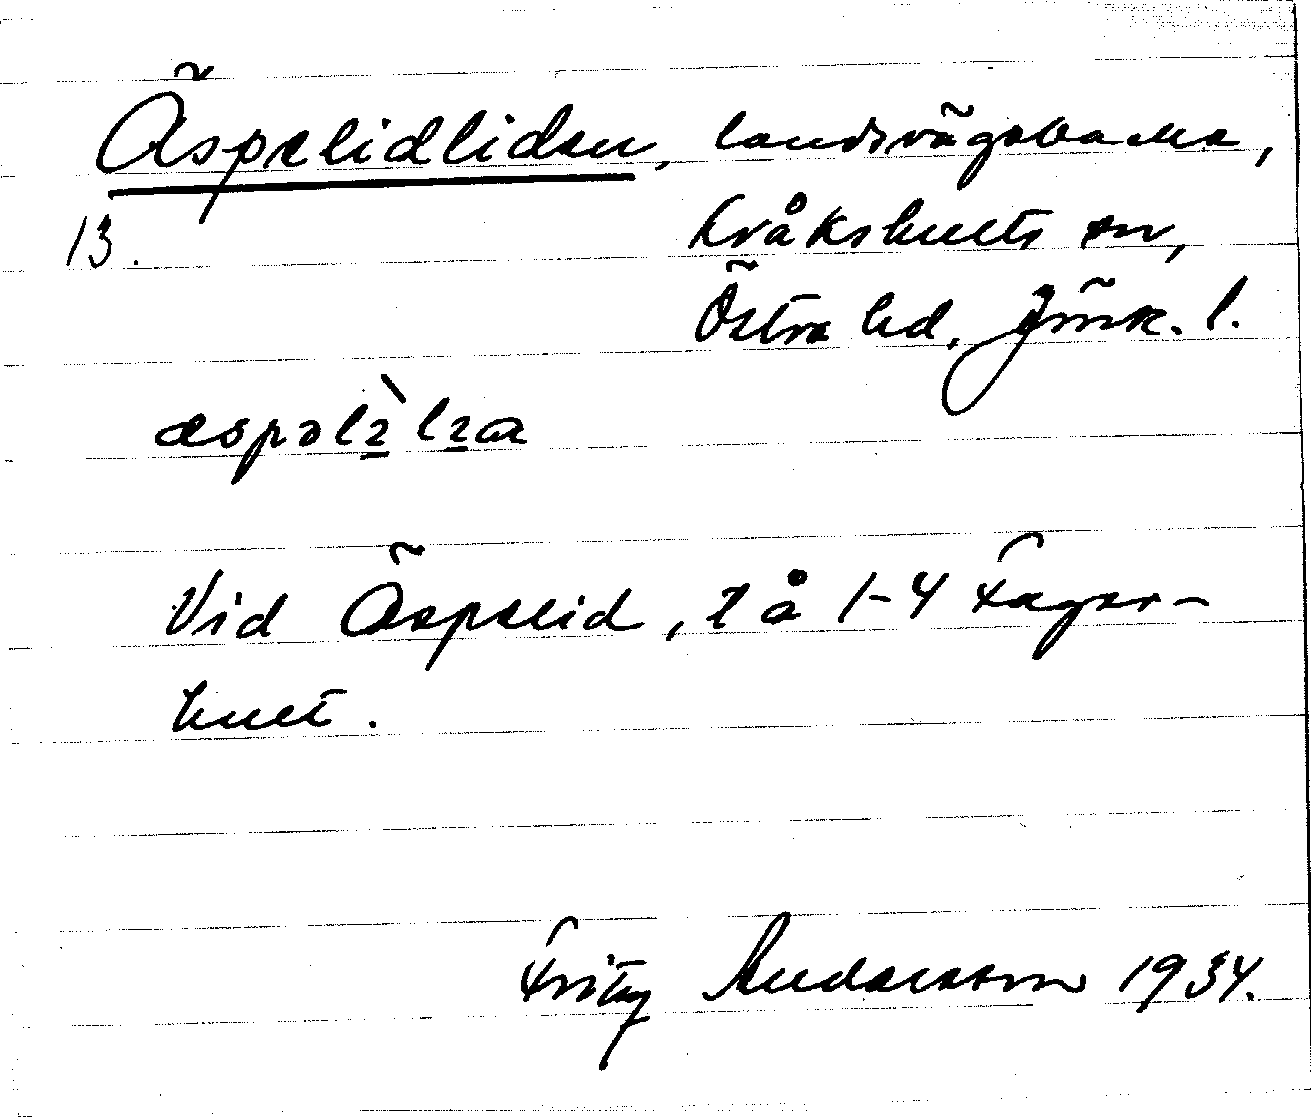 Äspelidliden, landsvägsbacke,
13. Kråkshults sn,
Östra hd, Jönk. l.
Vid Äspelid, 2 å 1-4 Fager-
hult.
Fritz Andersson 1934.